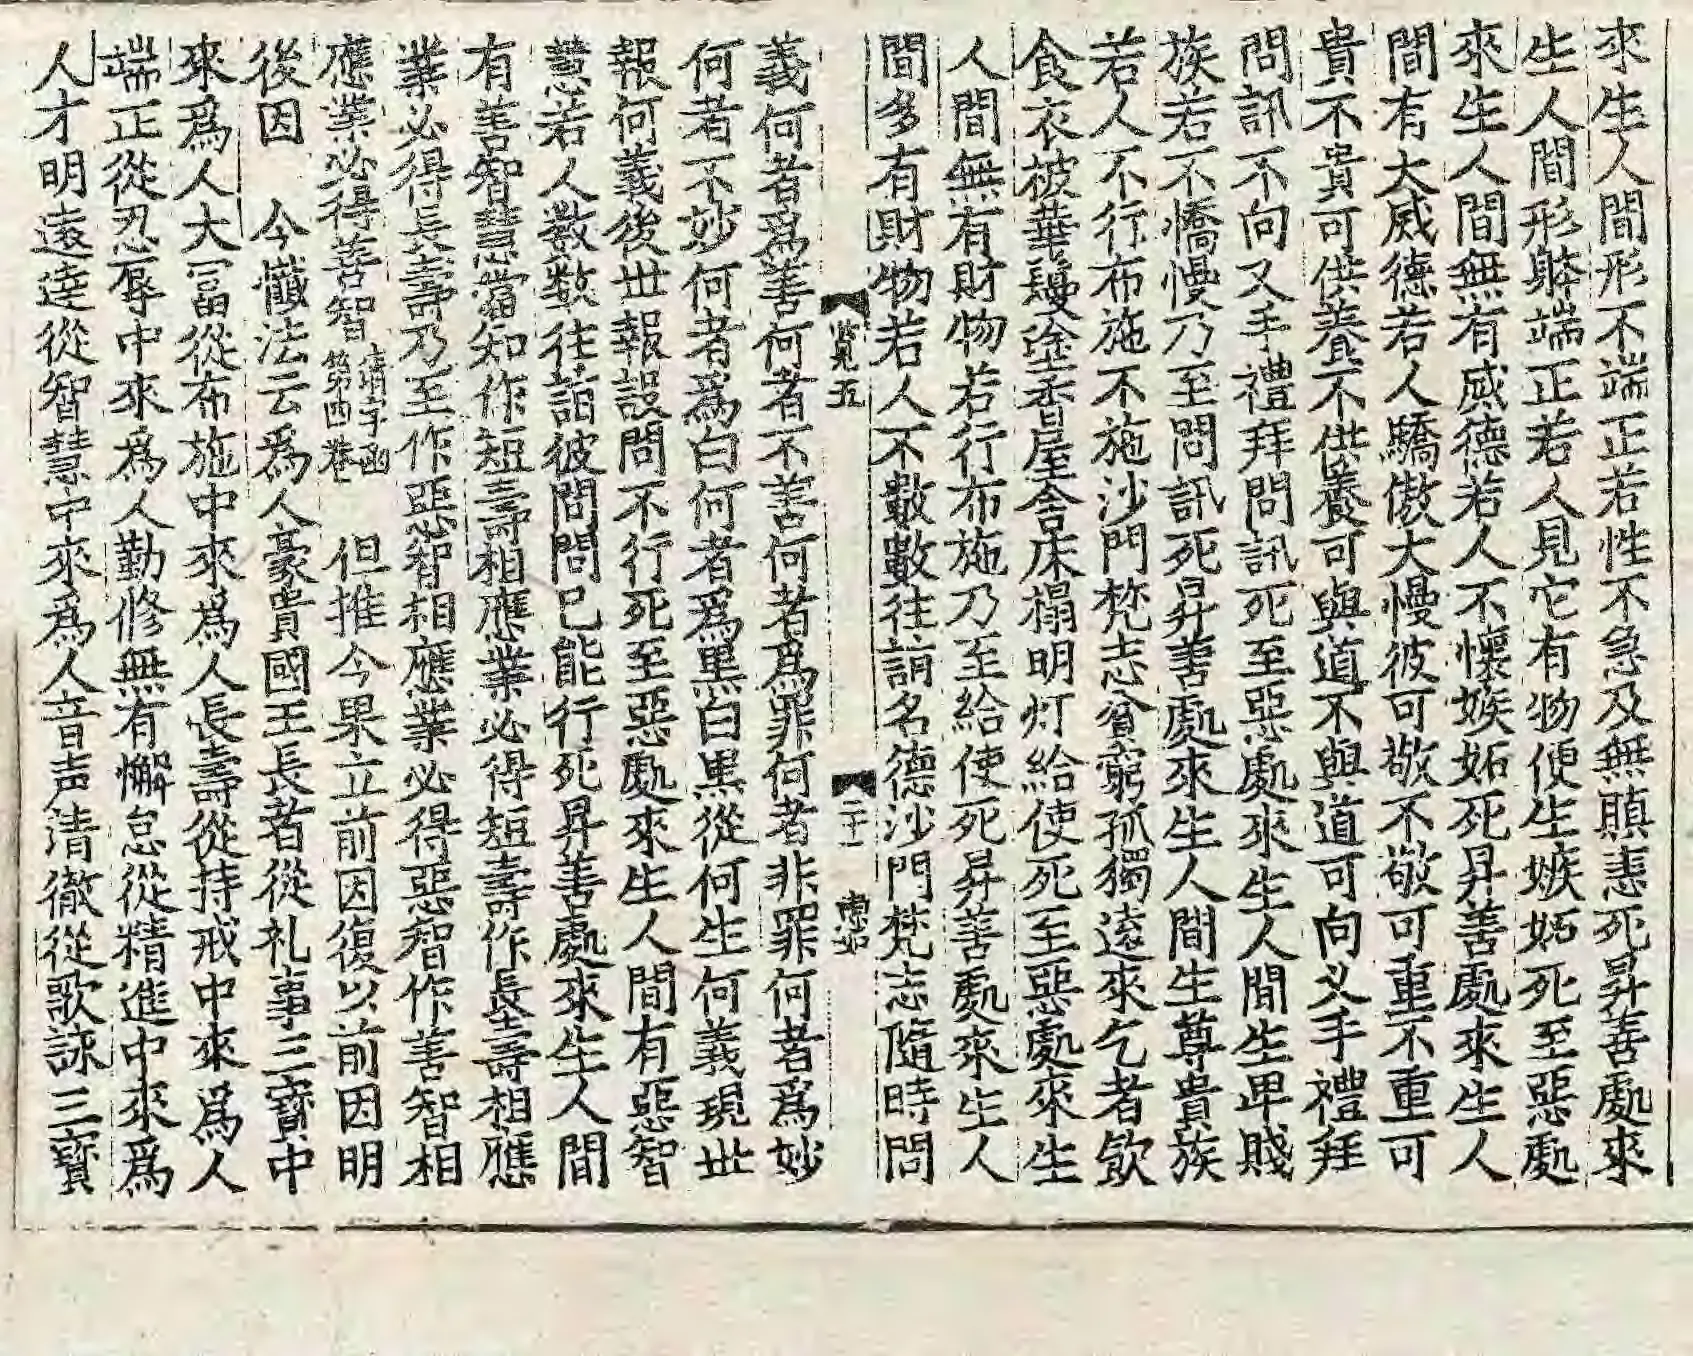 來生人間形不端正若性不急及無瞋恚死昇善處來
生人間形躰端正若人見它有物便生嫉妬死至惡處
來生人間無有威德若人不懷嫉妬死昇善處來生人
間有大威德若人驕傲大慢彼可敬不敬可重不重可
貴不貴可供養不供養可與道不與道可向叉手禮拜
問訊不向叉手禮拜問訊死至惡處來生人間生卑賤
族若不憍慢乃至問訊死昇善處來生人間生尊貴族
若人不行布施不施沙門梵志貧窮孤獨遠來乞者飲
食衣被華鬘塗香屋舍床榻明灯給使死至惡處來生
人間無有財物若行布施乃至給使死昇善處來生人
間多有財物若人不數數往謂名德沙門梵志隨時問
覧五 二十一
義何者爲善何者不善何者爲罪何者非罪何者爲妙
何者不妙何者爲白何者爲黑白黑從何生何義現世
報何義後世報設問不行死至惡處來生人間有惡智
慧若人數數往詣彼問問已能行死昇善處來生人間
有善智慧當知作短壽相應業必得短壽作長壽相應
業必得長壽乃至作惡智相應業必得惡智作善智相
應業必得善智 清字函第四卷 但推今果立前因復以前因明
後因 今懺法云爲人豪貴國王長者從礼事三寶中
來爲人大冨從布施中來爲人長壽從持戒中來爲人
端正從忍辱中來爲人勤修無有懈怠從精進中來爲
人才明遠達從智慧中來爲人音声清徹從歌詠三寶